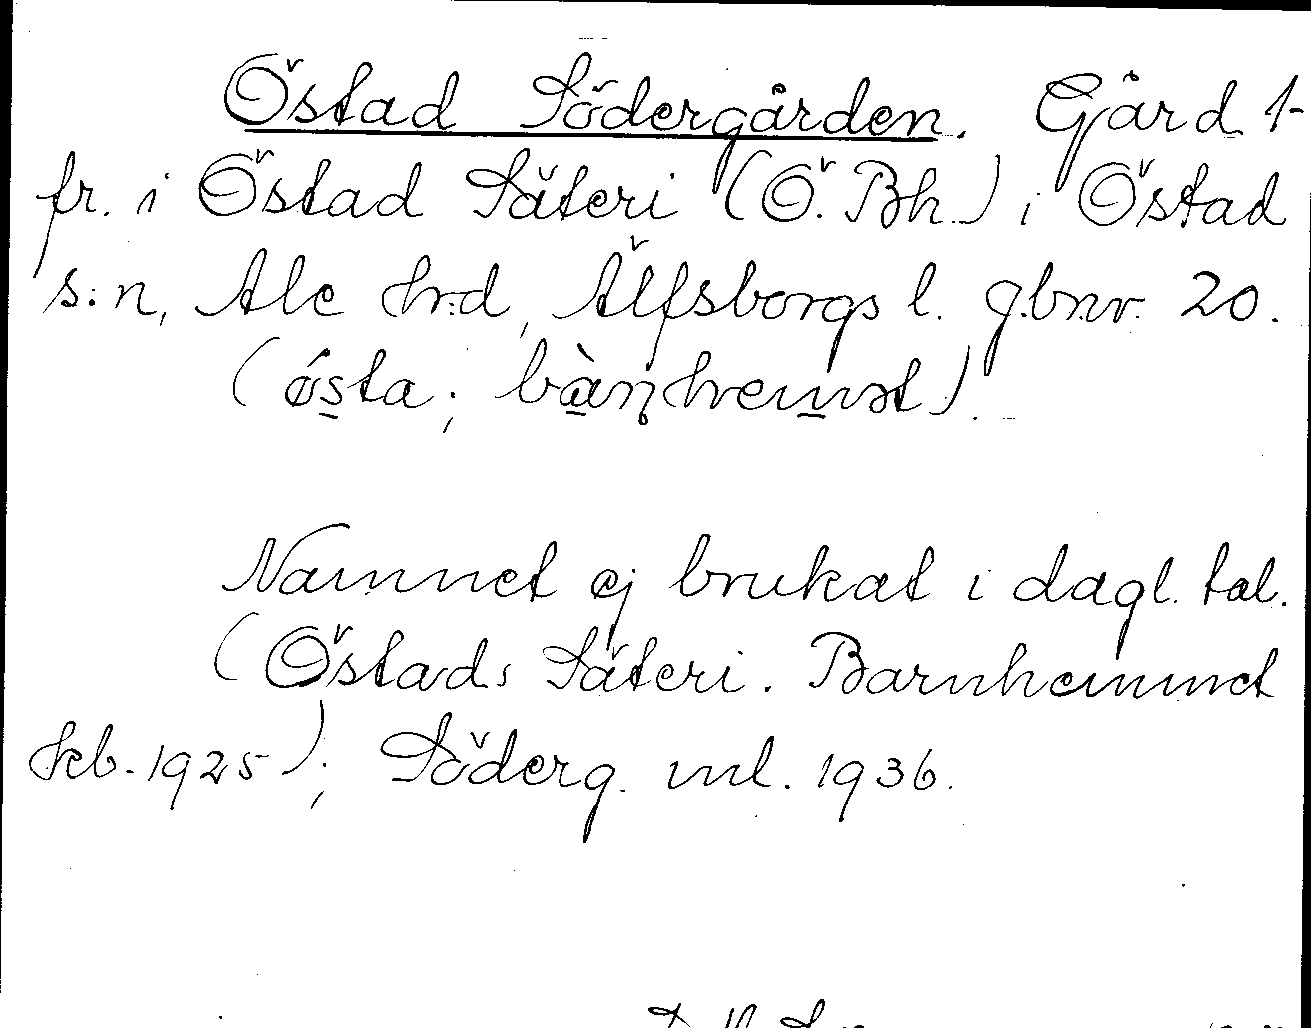 Östad Södergården. Gård 1-
fr. i Östad Säteri (Ö. Bh.) i Östad
s:n, Ale hr:d, Älfsborgs l. g.br.nr. 20.
(östa; bàrnhemət).
Namnet ej brukat i dagl. tal.
(Östads Säteri. Barnhemmet
feb. 1925); Söderg. ml. 1936.